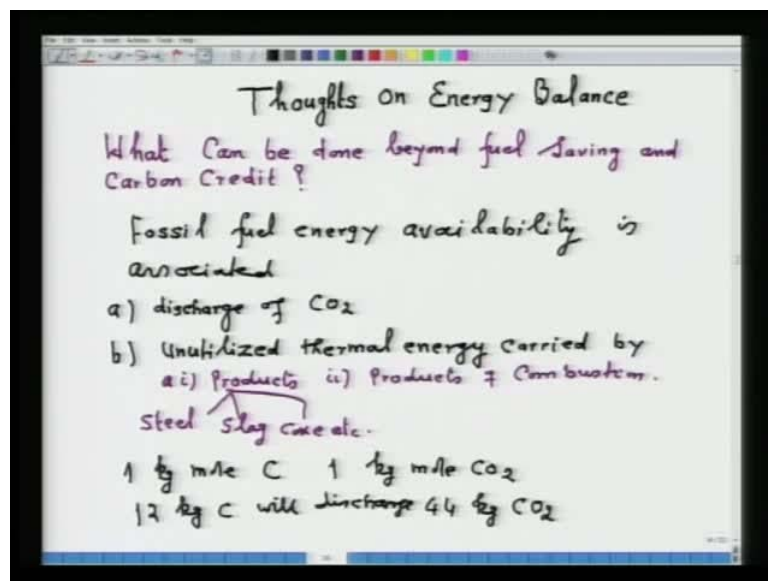 Thoughts on Energy Balance
What Can be done beyond fuel Saving and
Carbon Credit ?
Fossil fuel energy availability is
associated
a) discharge of CO2
b) Unutilized thermal energy carried by
a i) Products ii) Products of Combustion.
Steel Slag Coke etc.
1 kg mole C 1 kg mole CO2
12 kg C will discharge 44 kg CO2